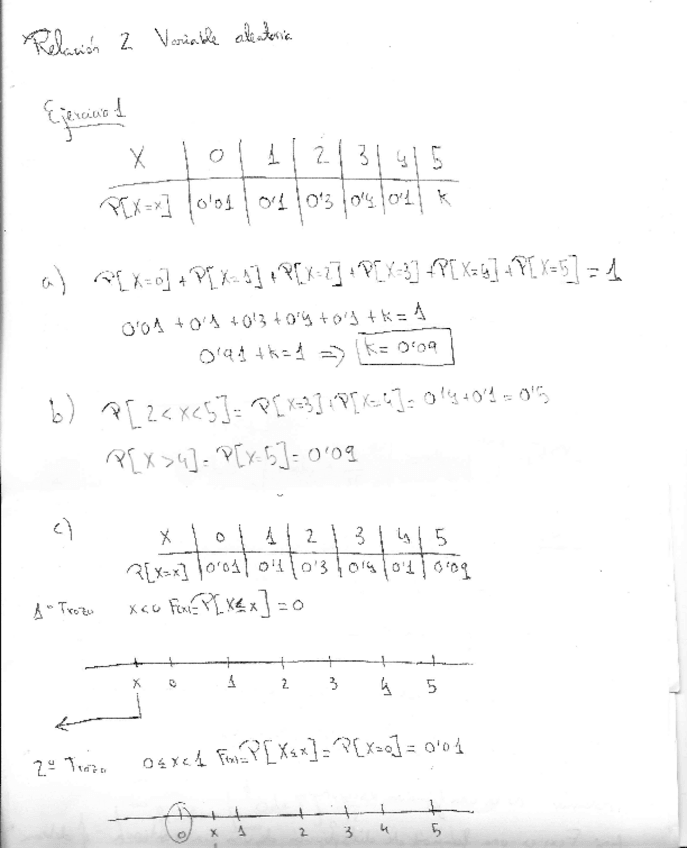 Relación 2 Variable aleatoria
Ejercicio 1
X | 0 | 1 | 2 | 3 | 4 | 5
P[X=x] | 0'01 | 0'1 | 0'3 | 0'4 | 0'1 | K
a) P[X=0]+P[X=1]+P[X=2]+P[X=3]+P[X=4]+P[X=5]=1
0'01+0'1+0'3+0'4+0'1+k=1
0'91+k=1 => k=0'09
b) P[2<x<5]=P[X=3]+P[X=4]=0'4+0'1=0'5
P[X>4]=P[X=5]=0'09
c)
X | 0 | 1 | 2 | 3 | 4 | 5
P[X=x] | 0'01 | 0'1 | 0'3 | 0'4 | 0'1 | 0'09
1º Trozo x<0 F(x)=P[X≤x]=0
x 0 1 2 3 4 5
2º Trozo 0≤x<1 F(x)=P[X≤x]=P[X=0]=0'01
0 x 1 2 3 4 5